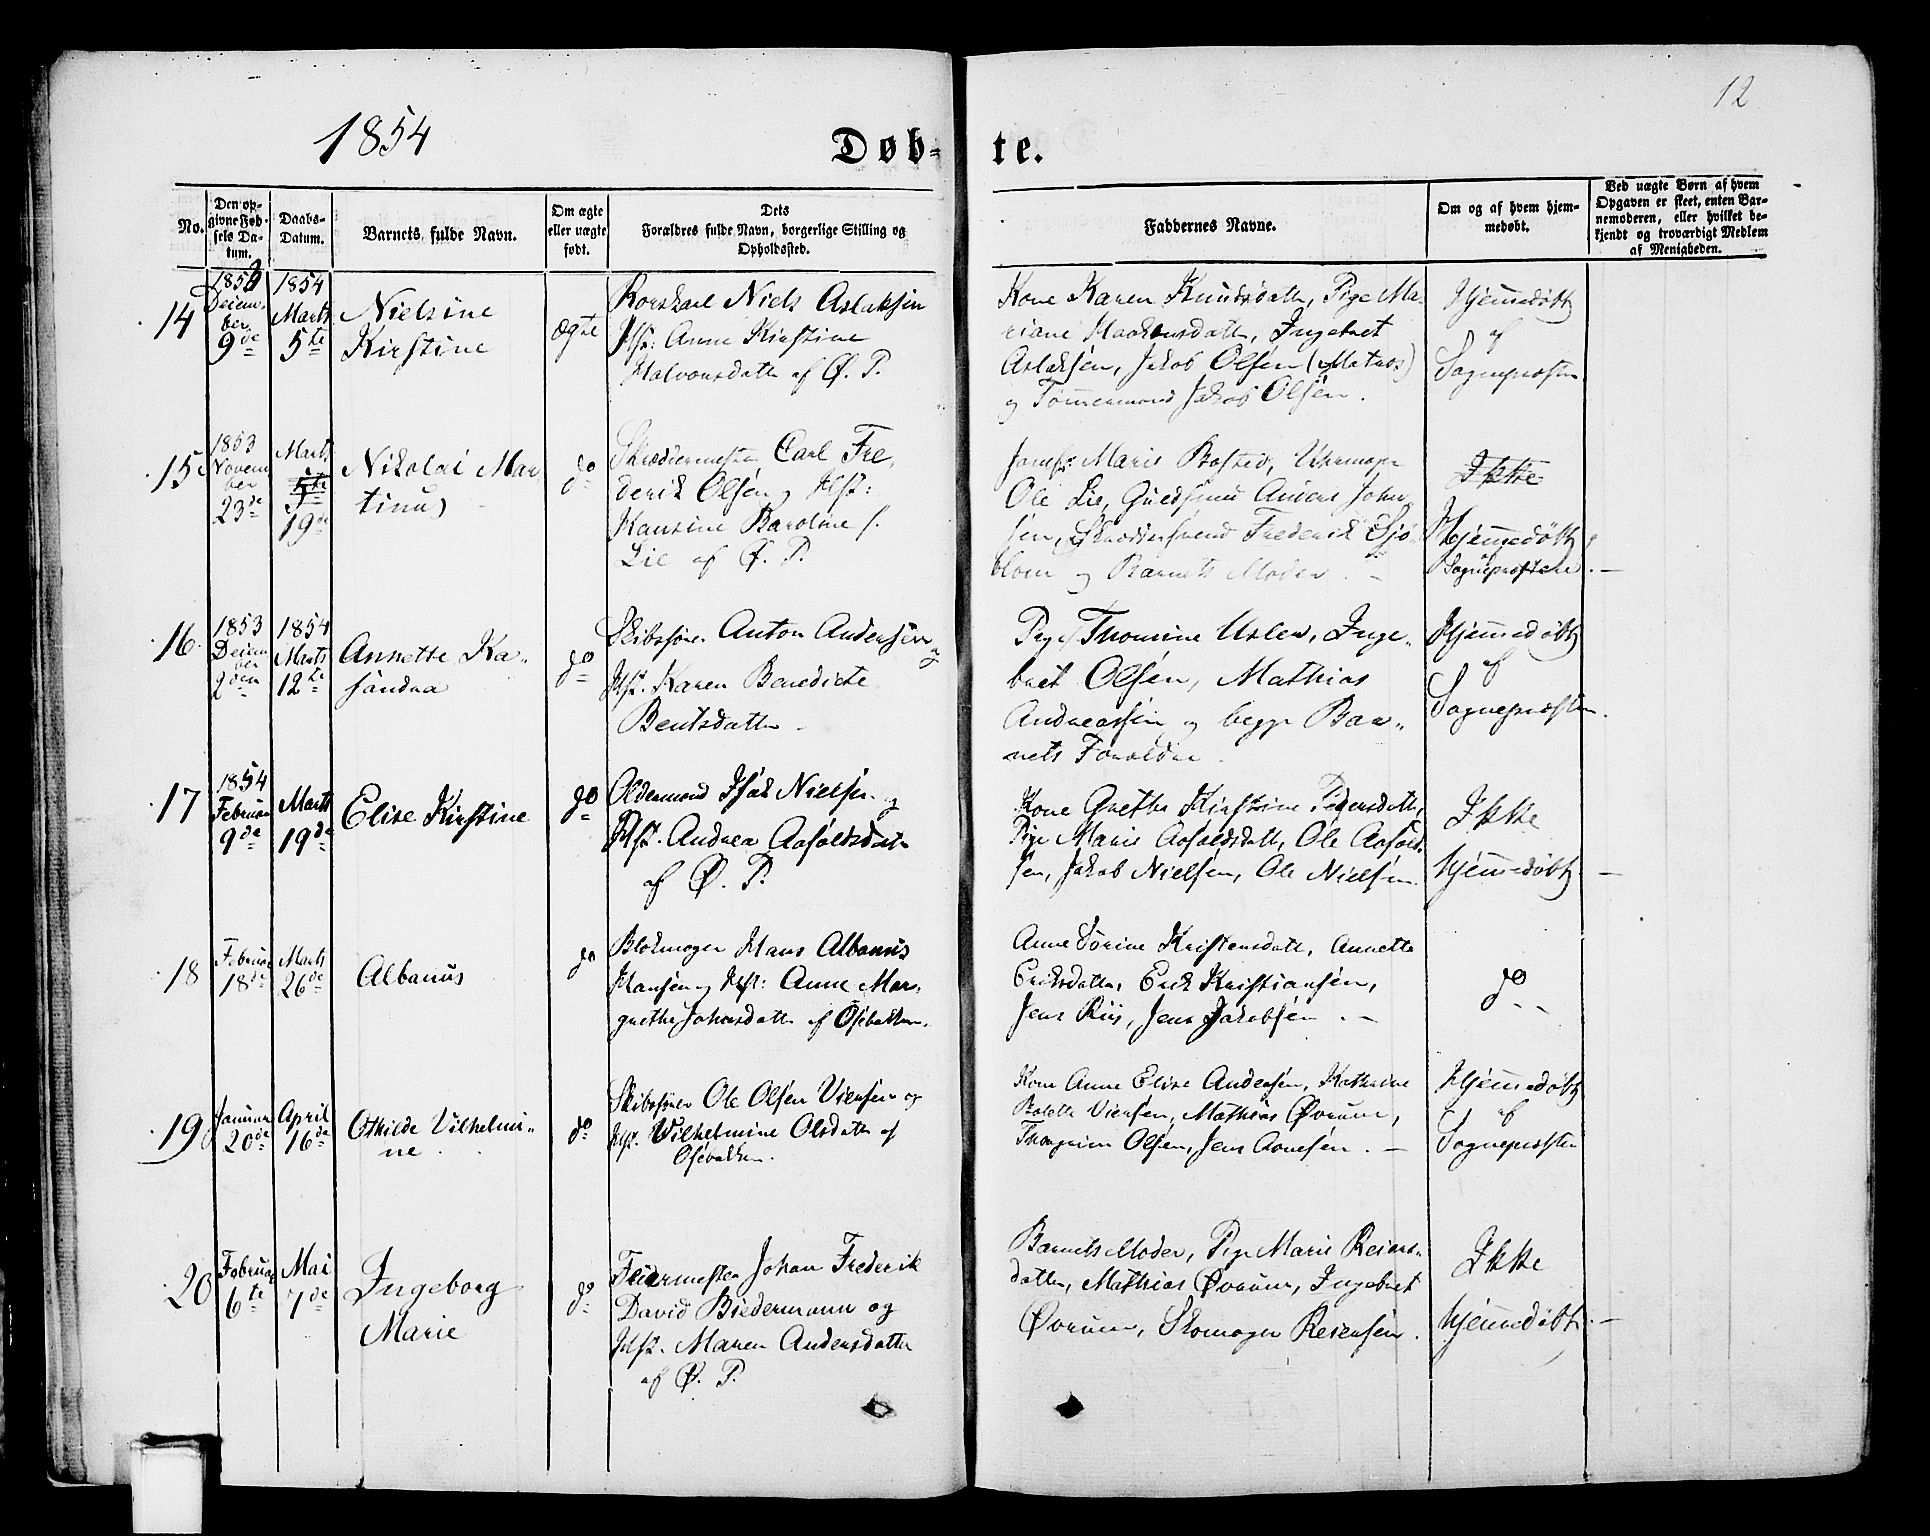 12
1854
Døb- te.
No.
Den opgivne Fødsels Datum.
Daabs-Datum.
Barnets fulde Navn.
Om ægte eller uægte født.
Dets Forældres fulde Navn, borgerlige Stilling og Opholdssted.
Faddernes Navne.
Om og af hvem hjemmedøbt.
Ved uægte Børn af hvem Opgaven er skeet, enten Barnemoderen, eller hvilket bekjendt og troværdigt Medlem af Menigheden.
14
1853
Decem
ber
9de
1854
Marts
5te
Nielsine
Kirstine
Ægte
Niels Aslaksen
Hst: Anne Kirstine
Halvorsdatter af Ø. P.
Kone Karen Knudsdatter, Pige Ma-
riane Haakensdatter, Ingebret
Aslaksen, Jakob Olsen (Matros)
og Tømmermand Jakob Olsen.
Hjemmedøbt
af
Sogneprosten
15
1853
Novem
ber
23de
Marts
5te
19de
Nikolai Mar
tinus
do
Skrædermester Carl Fre-
derik Olsen og Hst:
Hansine Baroline f.
Lie af Ø. P.
Jomf: Marie Bosted, Uhrmager
Ole Lie, Guldsmed Anders John
sen, Skrædersvend Frederik Sjø-
blom og Barnets Moder. -
Ikke
Hjemmedøbt
Sogneprosten. -
16.
1853
Decem
ber
2den
1854
Marts
12te
Annette Ka-
sandra
do
Skibsfører Anton Andersen og
Hst. Karen Benedicte
Bentsdatter -
Pige Thomine Uslev, Inge-
bret Olsen, Mathias
Andreassen og begge Bar-
nets Forældre.
Hjemmedøbt
af
Sogneprosten.
17
1854
Februar
9de
Marts
19de
Elise Kirstine
do
Oldermand Isak Nielsen og
Hst. Andrea Aasoldsdatter
af Ø. P.
Kone Grethe Kirstine Pedersdatter,
Pige Marie Aasoldsdatt, Ole Aasold-
sen, Jakob Nielsen, Ole Nielsen.
Ikke
Hjemmedøbt -
18
Februar
18de
Marts
26de
Albanus
do
Blokmager Hans Albanus
Hansen og Hst: Anne Mar-
grethe Johnsdatter af Osebakken.
Anne Sorine Kristensdatt, Annette
Eriksdatter, Erik Kristiansen,
Jens Riis, Jens Jakobsen. -
do -
19
Januar
20de
April
16de
Othilde Vilhelmi-
ne.
do
Skibsfører Ole Olsen Viersen og
Hst. Vilhelmine Olsdatter af
Osebakken.
Kone Anne Elise Andersen, Kathrine
Bolette Viersen, Mathias Øvrum,
Olsen, Jens Aanesen. -
Hjemmedøbt
af
Sogneprosten
20
Februar
6te
Mai
7de
Ingeborg
Marie
do
Feiermester Johan Frederik
David Biedermann og
Hst. Maren Andersdatter
af Ø. P.
Barnets Moder, Pige Marie Reiers-
datter, Mathias Øvrum, Ingebret
Øvrum, Skomager Reiersen.
Ikke
Hjemmedøbt. -